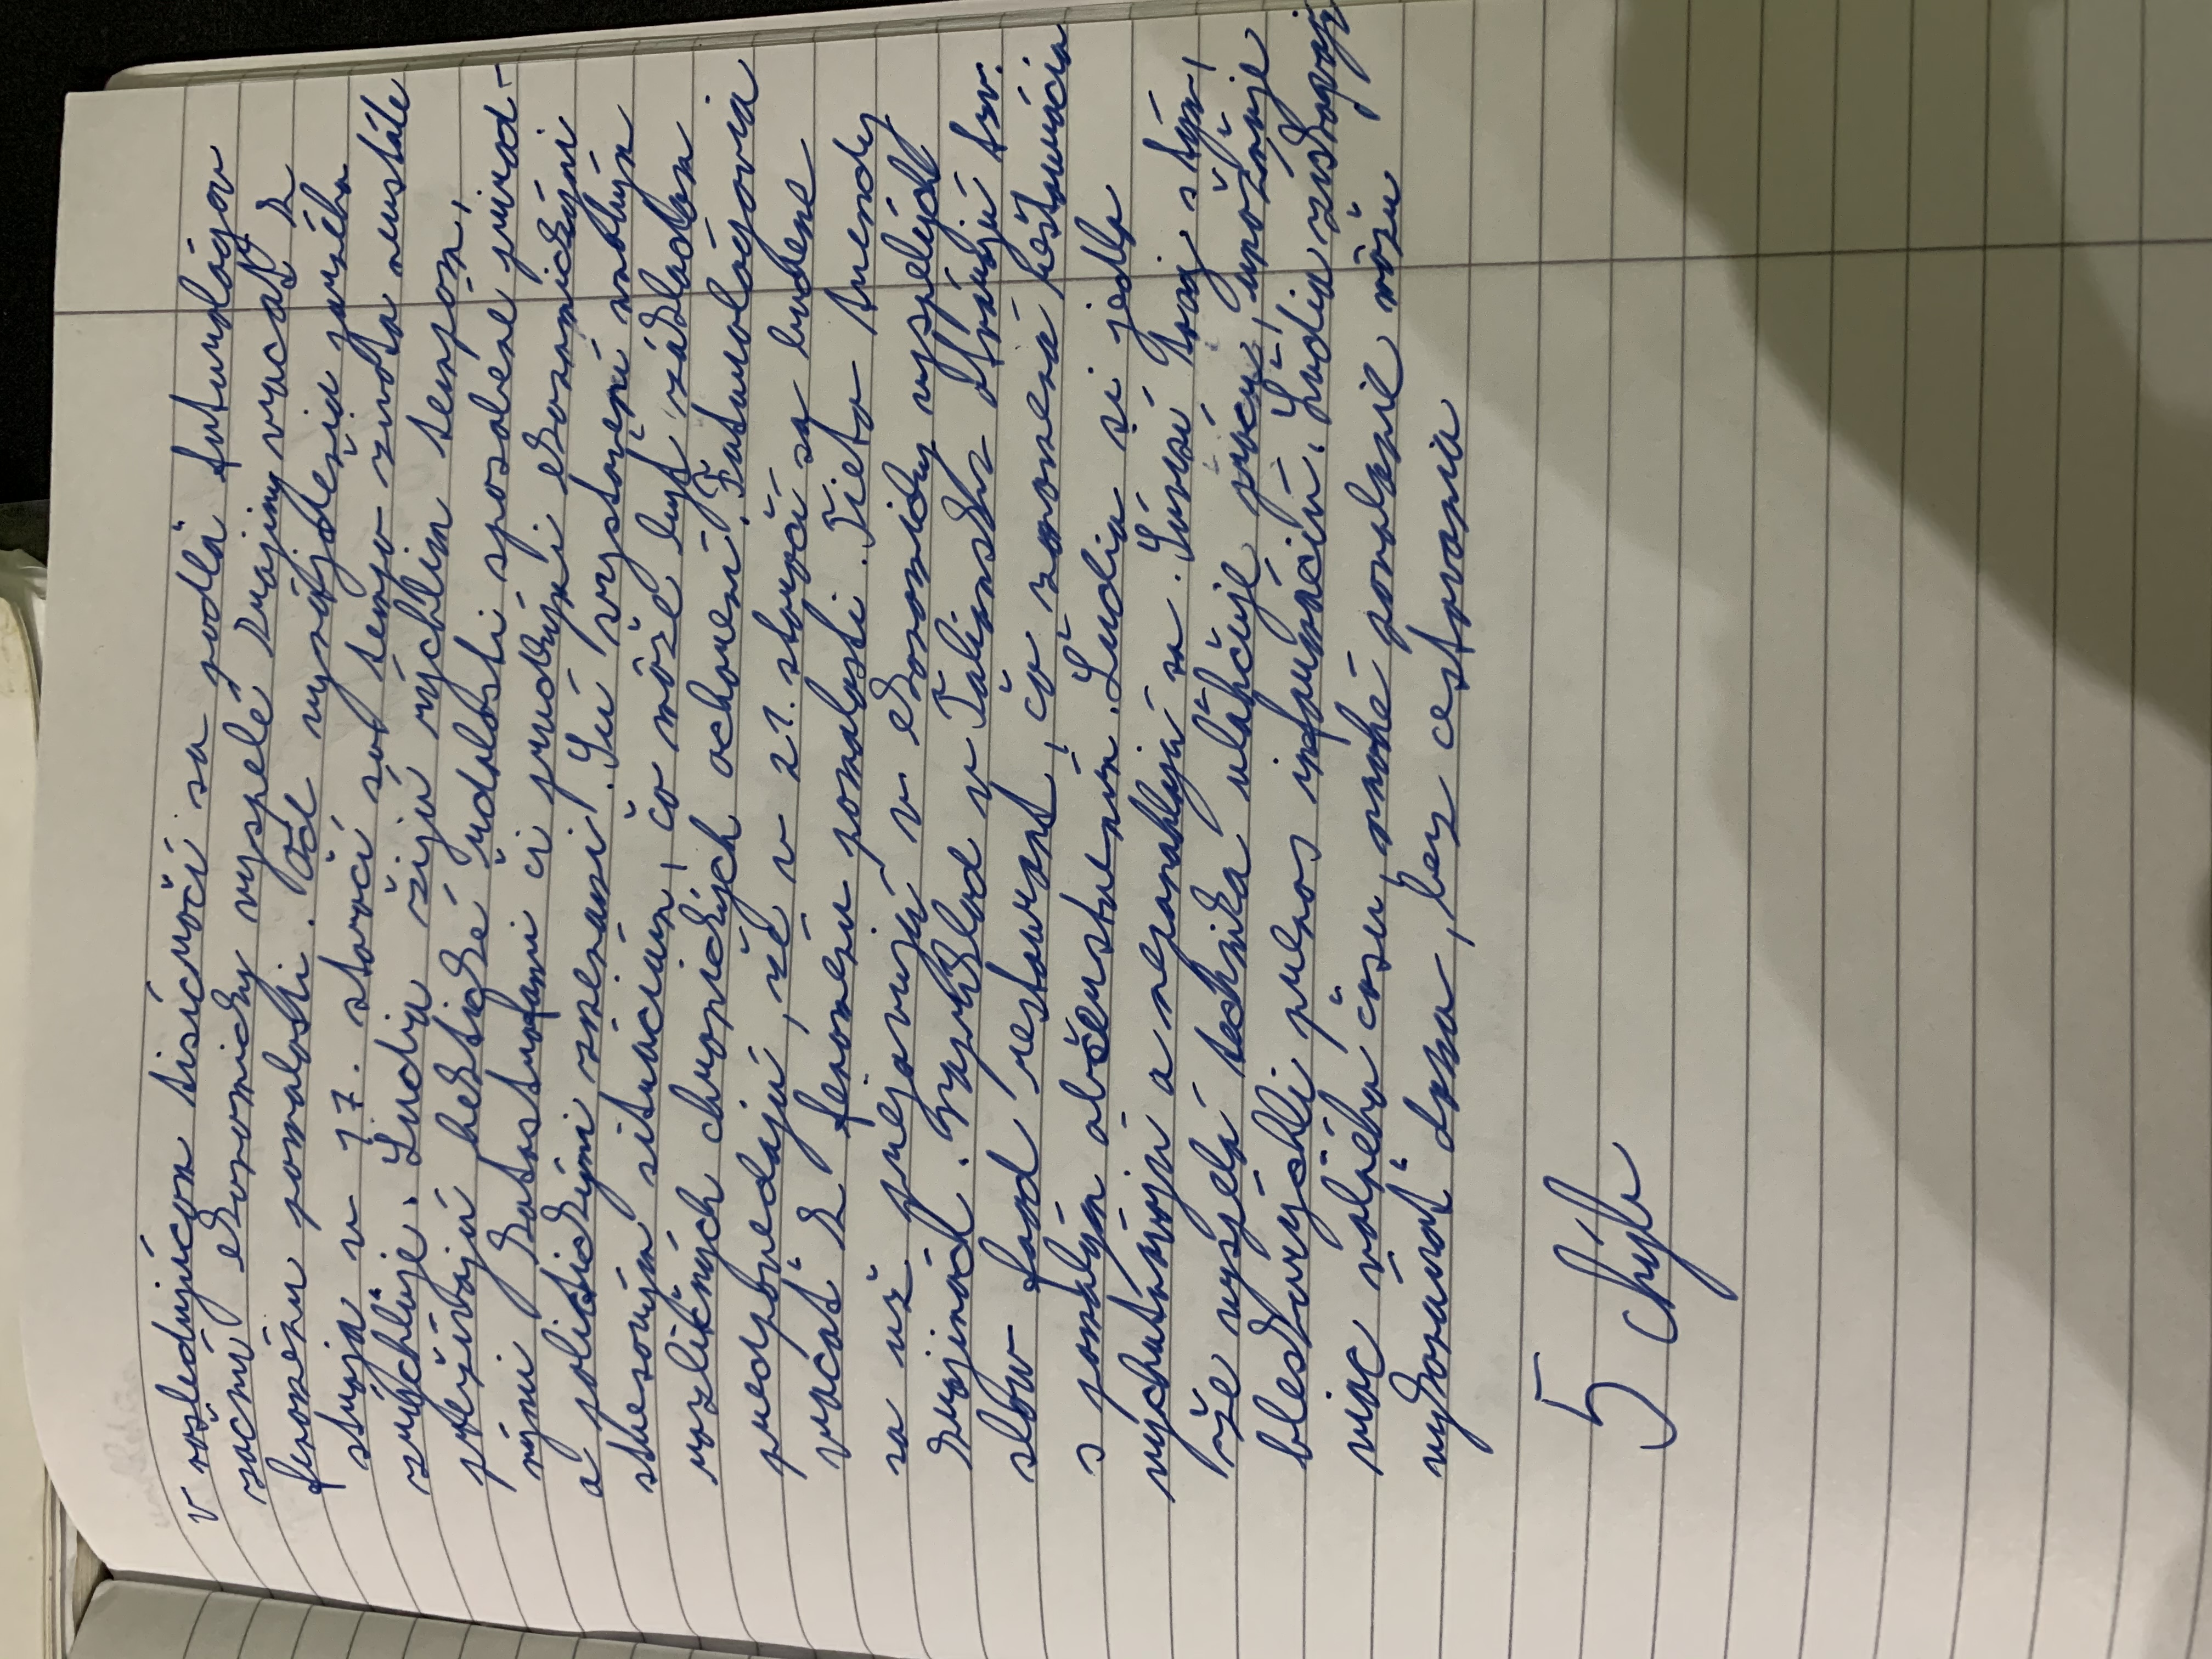 v nasledujúcom tisícročí sa podľa futurológov
začnú ekonomicky vyspelé krajiny vracať k
fenoménu pomalosti. Od vynájdenia parného
stroja v 17. storočí sa tempo života neustále
zrýchľuje. Ľudia žijú rýchlim tempom,
prežívajú hektické udalosti sposobené prírod-
nými katastrofami či prudkými ekonomickými
a politickými zmenami. Sú vystavení mnohým
stresovým situáciám, čo môže byť základom
rozličných chronických ochorení. Futurológovia
predpovedajú, že v 21. storočí sa budeme
vracať k fenoménu pomalosti. Tieto trendy
sa už prejavujú v ekonomicky vyspelých
krajinách. Napríklad v Taliansku otvárajú tzv.
slow food restaurant, čo znamená reštaurácia
s pomalým občerstvením. Ľudia si jedlo
vychutnávajú a neponáhľajú sa. Súvisí to aj s tým,
že vyspelá technika uľahčuje prácu, umožňuje
bleskorýchli prenos informácií. Ľudia získavajú
viac voľného času, mnohé povolanie môžu
vykonávať doma, bez cestovania
5 chýb